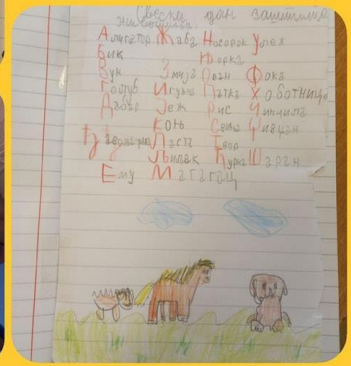 Светски дан заштите
животиња
Алигатор Жаба Носорог Улев
Бик Њорка
Вук Змија Оран Фока
Голуб Игуана Патка Хоботница
Дабар Јеж Рис Чинчила
Коњ Сова
Ласта Твор
Љиљак Ћурка Шаран
Ему Магарац